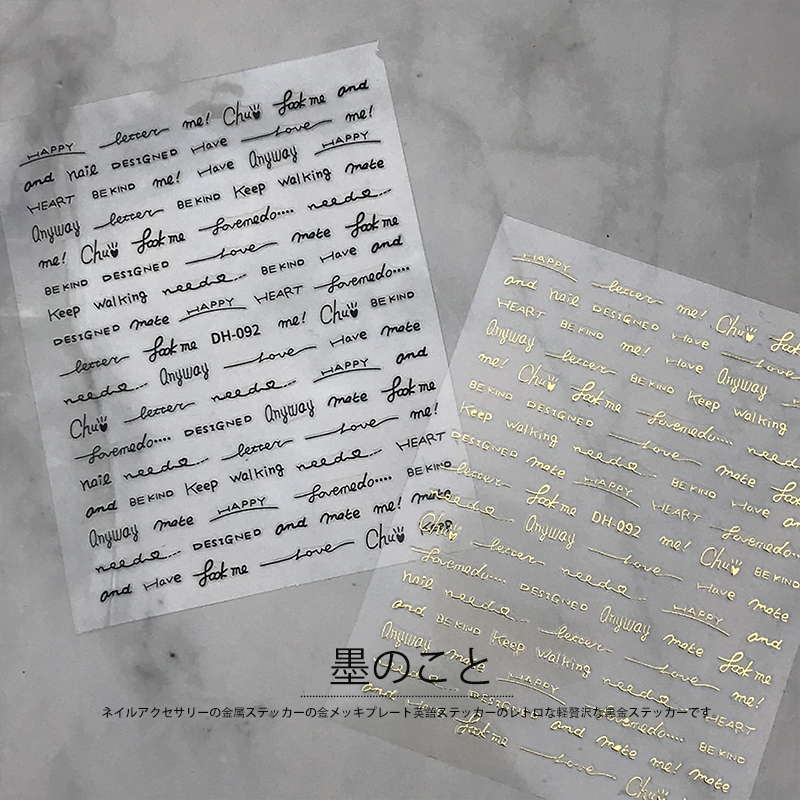 HAPPY letter me! Chu look me and
and nail DESIGNED Have Love me!
HEART BE KIND me! Have Anyway HAPPY
Anyway letter BE KIND Keep walking mate
me! Chu look me lovemedo.... need...
BE KIND DESIGNED Love mate look me
Keep walking need... BE KIND Have and
DESIGNED mate HAPPY HEART lovemedo....
letter look me DH-092 me! Chu BE KIND
need... Anyway Love Have mate
Chu letter need... HAPPY and
lovemedo.... DESIGNED Anyway mate look me
nail need... letter Love me!
and BE KIND Keep walking need... HEART
Anyway mate HAPPY lovemedo.... BE KIND
need... DESIGNED and mate me! mate
and Have look me Love Chu
HAPPY letter me! Chu look
and nail DESIGNED Have Love
HEART BE KIND me! Have Anyway
Anyway letter BE KIND Keep walking
me! Chu look me lovemedo.... need
BE KIND DESIGNED Love mate look
Keep walking need... BE KIND Have and
DESIGNED mate HAPPY HEART lovemedo....
letter look me DH-092 me! Chu BE KIND
need... Anyway Love Have mate
Chu letter need... HAPPY and
lovemedo.... DESIGNED Anyway mate look me
nail need... letter Love me!
and BE KIND Keep walking need... HEART
Anyway mate HAPPY lovemedo.... BE KIND
need... DESIGNED and mate me! mate
and Have look me Love Chu
墨のこと
ネイルアクセサリーの金属ステッカーの金メッキプレート英語ステッカーのレトロな軽贅沢な黒金ステッカーです